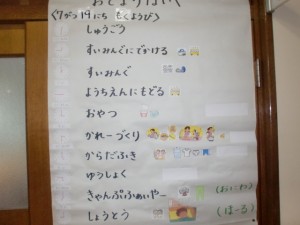 おとまりほいく
(7がつ19にち きんようび)
しゅうごう
すいみんぐにでかける
すいみんぐ
ようちえんにもどる
おやつ
かれーづくり
からだふき
ゆうしょく
きゃんぷふぁいやー
しょうとう
(ほーる)